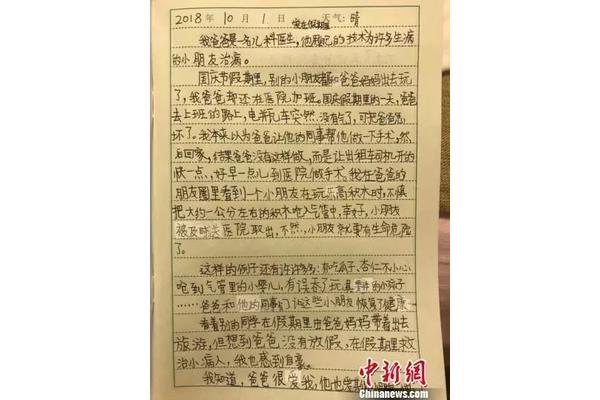 2018年10月1日 天气:晴
我爸爸是一名儿科医生,他用自己的技术为许多生病
的小朋友治病。
国庆节假期里,别的小朋友都和爸爸妈妈出去玩
了,我爸爸却还在医院加班。国庆假期里的一天,爸爸
去上班的路上,电瓶车突然没有气了,可把爸爸急
坏了。我本来以为爸爸让他的同事帮他做一下手术,然
后回家,结果爸爸没有这样做,而是让出租车司机开的
快一点,好早一点儿到医院做手术。我在爸爸的
朋友圈里看到一个小朋友在玩乐高积木时,不慎
把大约一公分左右的积木吹入气管中,幸好,小朋友
被及时送医院取出,不然,小朋友就要有生命危险
了。
这样的例子还有许许多多:有吃瓜子、杏仁不小心
呛到气管里的小婴儿,有误吞了玩具零件的小孩子
……爸爸和他的同事们让这些小朋友恢复了健康
看着别的同学在假期里由爸爸妈妈带着出去
旅游,但想到爸爸没有放假,在假期里救
治小病人,我也感到自豪。
我知道,爸爸很爱我,他也
中新网
Chinanews.com